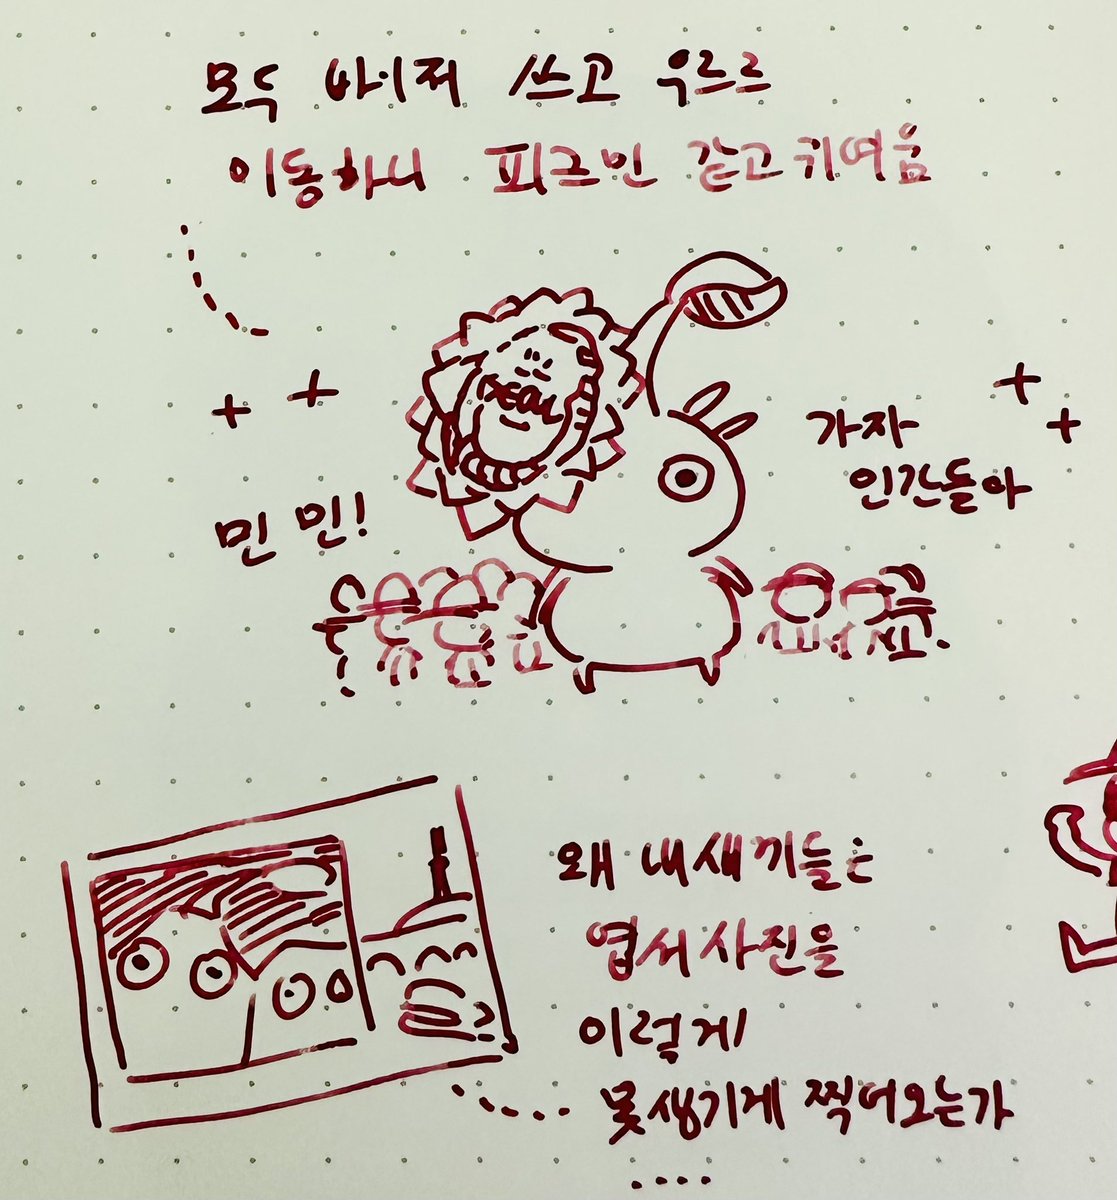 모두 바이저 쓰고 우르르
이동하니 피크민 같고 귀여움
가자
인간들아
민 민!
왜 내새끼들은
엽서 사진을
이렇게
못생기게 찍어오는가
....